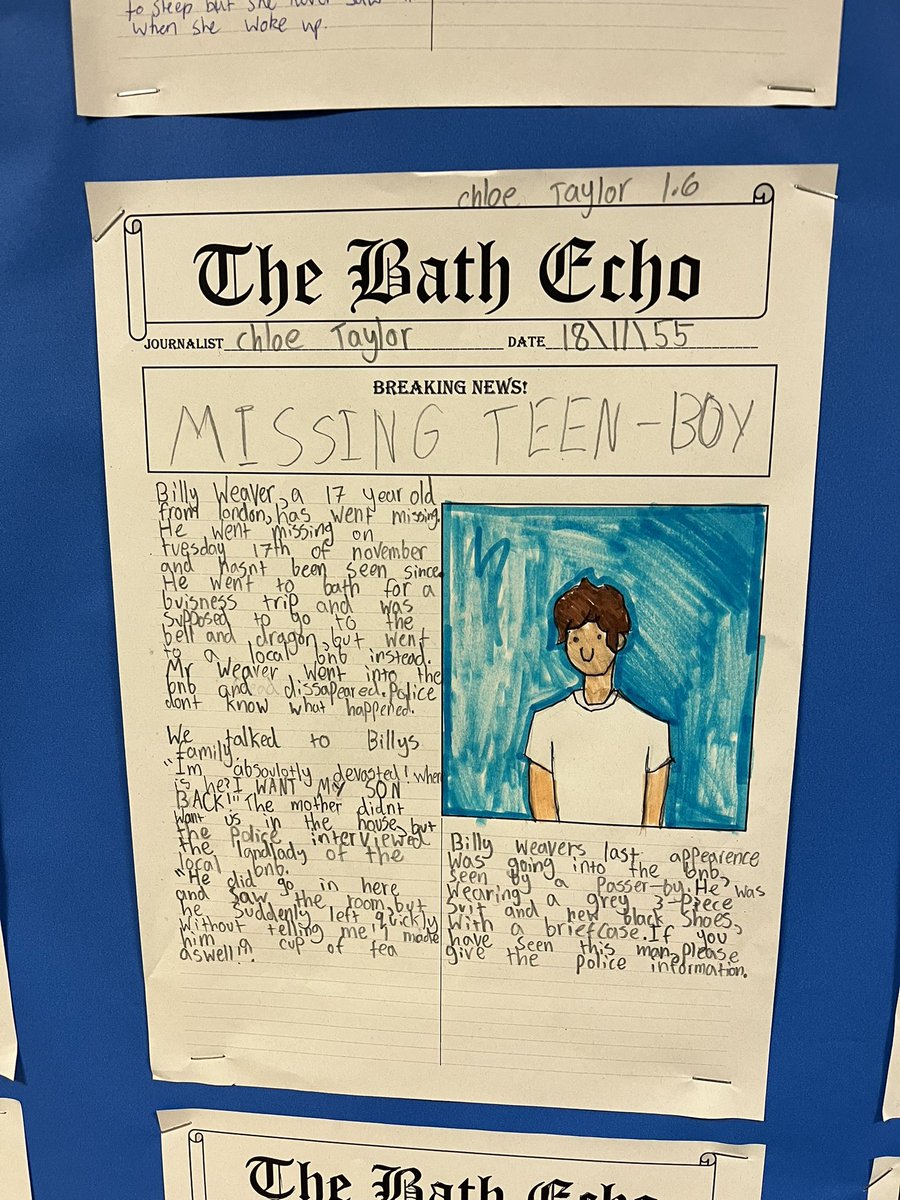 to sleep but she never saw it
when she woke up.
chloe Taylor 1.6
The Bath Echo
JOURNALIST chloe Taylor DATE 18\11\55
BREAKING NEWS!
MISSING TEEN-BOY
Billy Weaver, a 17 year old
from london, has went missing.
He went missing on
tuesday 17th of november
and hasnt been seen since.
He went to bath for a
buisness trip and was
supposed to go to the
bell and dragon, but went
to a local bnb instead.
Mr Weaver went into the
bnb and dissapeared. Police
dont know what happened.
We talked to Billys
family.
"Im absoulotly devasted! Where
is he? I WANT MY SON
BACK!" The mother didnt
want us in the house, but
the Police interviewed
the landlady of the
local bnb.
"He did go in here
and saw the room, but
he suddenly left quickly
without telling me. I made
him a cup of tea
aswell!"
Billy weavers last appearence
was going into the bnb,
seen by a passer-by. He was
wearing a grey 3-piece
suit and new black shoes,
with a briefcase. If you
have seen this man, please
give the police information.
The Bath Echo